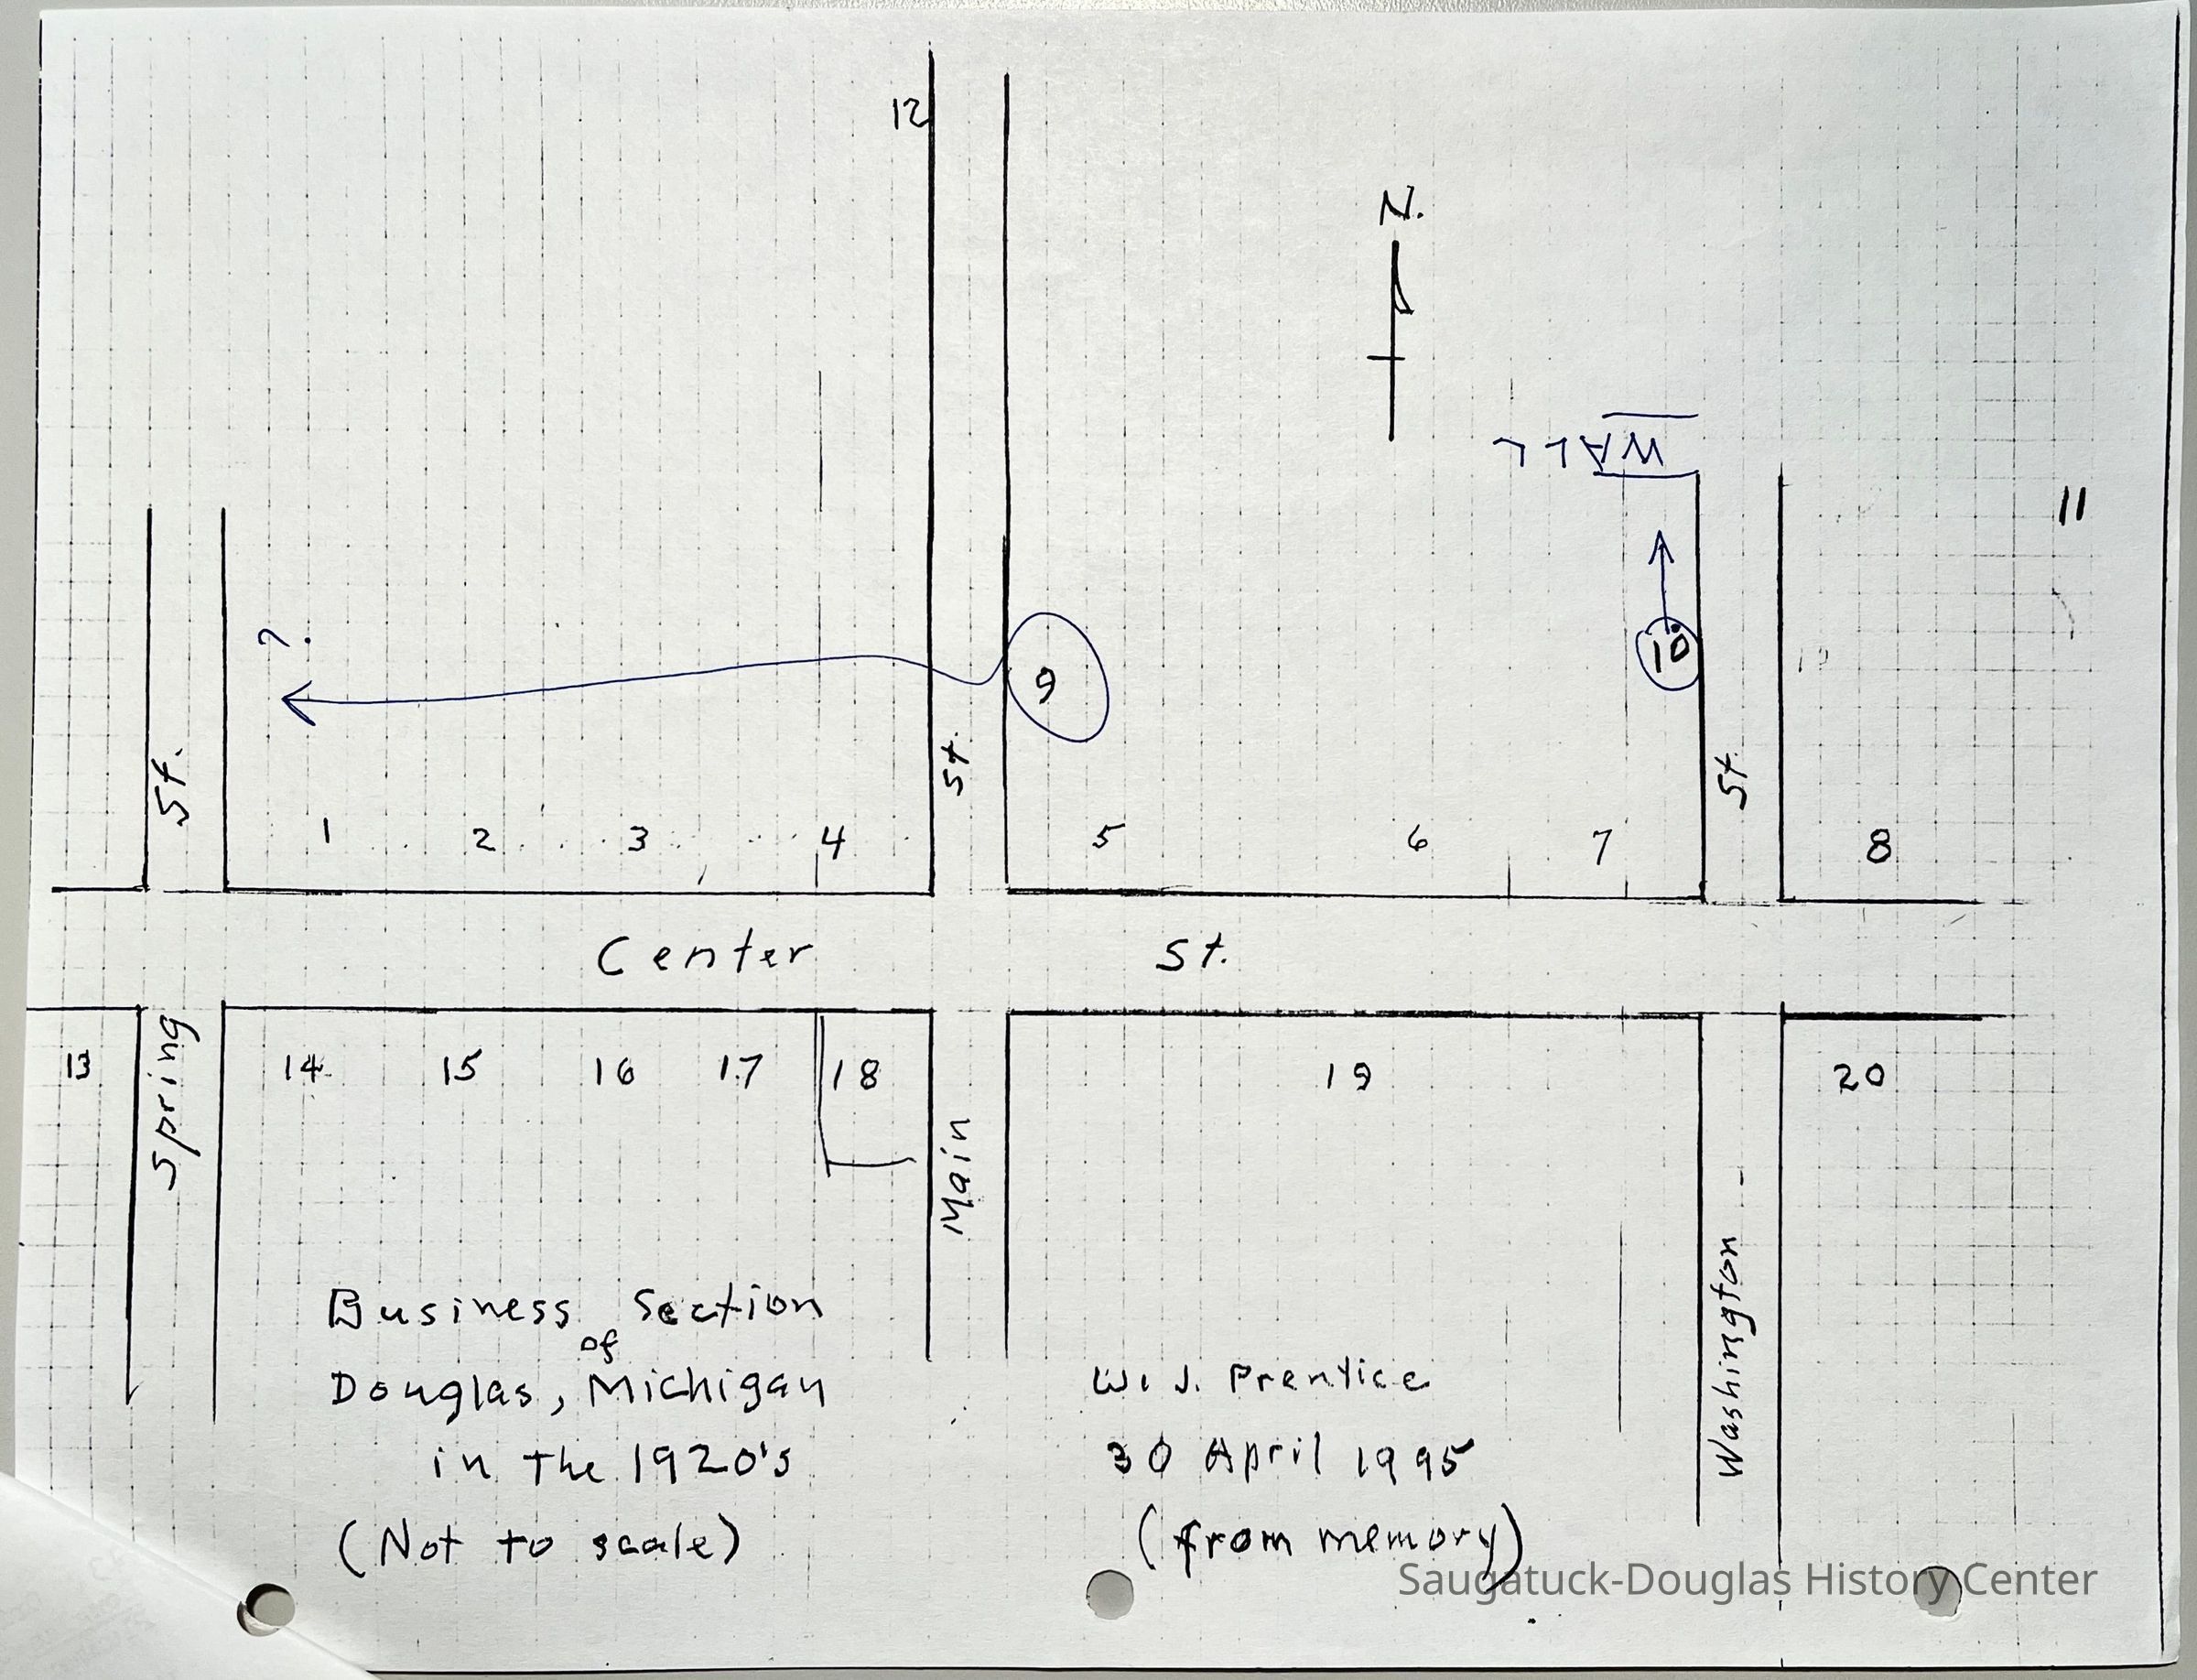 12
N.
WALL
11
?.
10
9
St.
St.
St.
1 2 3 4 5 6 7 8
Center St.
13 14 15 16 17 18 19 20
Spring
Main
Washington
Business Section
of
Douglas, Michigan
in the 1920's
(Not to scale)
W. J. Prentice
30 April 1995
(from memory)
Saugatuck-Douglas History Center